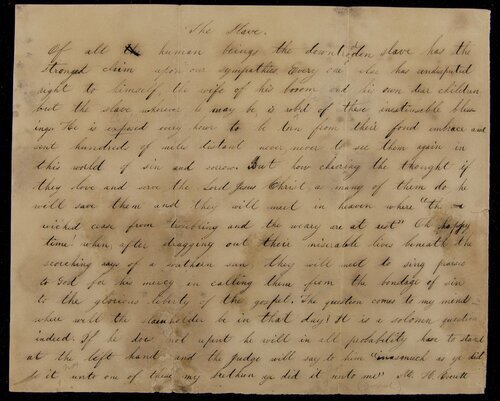 The Slave.
Of all human beings the downtrodden slave has the
strongest claim upon our sympathies. Every one else has undisputed
right to himself, the wife of his bosom and his own dear children
but the slave wherever he may be is rob'd of these inestimable bless
ings. He is exposed every hour to be torn from their fond embrace and
sent hundreds of miles distant never never to see them again in
this world of sin and sorrow. But how cheering the thought if
they love and serve the Lord Jesus Christ as many of them do he
will save them and they will meet in heaven where "the
wicked cease from troubling and the weary are at rest" Oh happy
time when after dragging out their miserable lives beneath the
scorching rays of a southern sun, they will meet to sing praises
to God for his mercy in calling them from the bondage of sin
to the glorious liberty of the gospel. The question comes to my mind
where will the slaveholder be in that day? It is a solomn question
indeed. If he does not repent he will in all probability have to stand
at the left hand and the Judge will say to him "inasmuch as ye did
it unto one of these my brethren ye did it unto me" M. H.